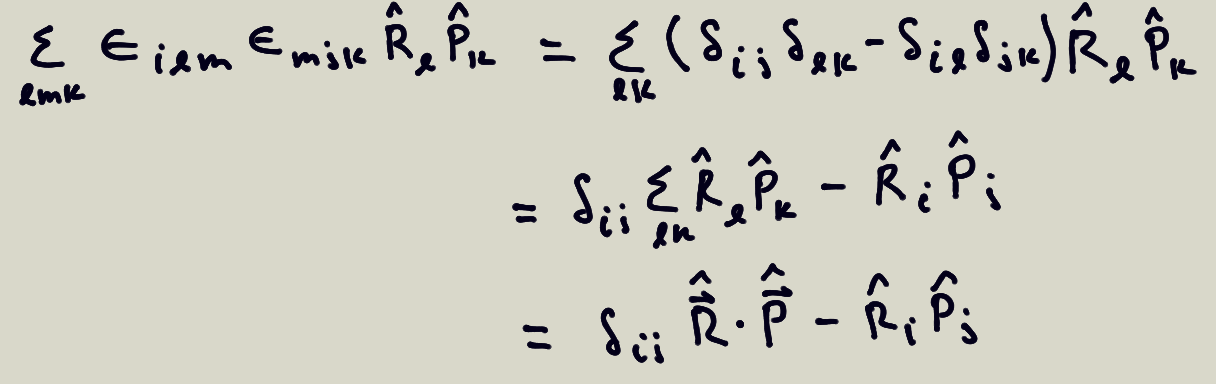 Σ_{ℓmk} ∈_{iℓm} ∈_{mjk} R̂_ℓ P̂_k = Σ_{ℓk} (δ_{ij} δ_{ℓk} - δ_{iℓ} δ_{jk}) R̂_ℓ P̂_k
= δ_{ij} Σ_{ℓk} R̂_ℓ P̂_k - R̂_i P̂_j
= δ_{ij} \hat{\vec{R}} · \hat{\vec{P}} - R̂_i P̂_j